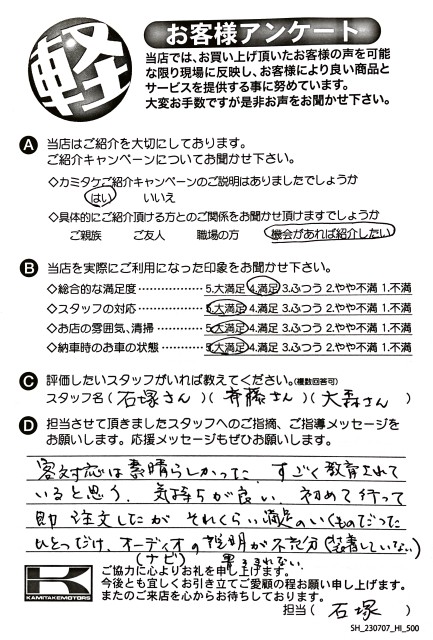 軽
お客様アンケート
当店では、お買い上げ頂いたお客様の声を可能
な限り現場に反映し、お客様により良い商品と
サービスを提供する事に努めています。
大変お手数ですが是非お声をお聞かせ下さい。
A 当店はご紹介を大切にしております。
ご紹介キャンペーンについてお聞かせ下さい。
◇カミタケご紹介キャンペーンのご説明はありましたでしょうか
はい いいえ
◇具体的にご紹介頂ける方とのご関係をお聞かせ頂けますでしょうか
ご親族 ご友人 職場の方 機会があれば紹介したい
B 当店を実際にご利用になった印象をお聞かせ下さい。
◇総合的な満足度 5.大満足 4.満足 3.ふつう 2.やや不満 1.不満
◇スタッフの対応 5.大満足 4.満足 3.ふつう 2.やや不満 1.不満
◇お店の雰囲気、清掃 5.大満足 4.満足 3.ふつう 2.やや不満 1.不満
◇納車時のお車の状態 5.大満足 4.満足 3.ふつう 2.やや不満 1.不満
C 評価したいスタッフがいれば教えてください。(複数回答可)
スタッフ名(石塚さん)(斉藤さん)(大森さん)
D 担当させて頂きましたスタッフへのご指摘、ご指導メッセージを
お願いします。応援メッセージもぜひお願いします。
客対応は素晴らしかった すごく教育されて
いると思う。気持ちが良い。初めて行って
即 注文したが それくらい満足のいくものだった
ひとつだけ、オーディオの説明が不充分(装着していない)
(ナビ)
ご協力に心よりお礼を申し上げます。
今後とも宜しくお引き立てご愛顧の程お願い申し上げます。
またのご来店を心からお待ちしております。
KAMITAKEMOTORS
担当(石塚)
SH_230707_HI_500